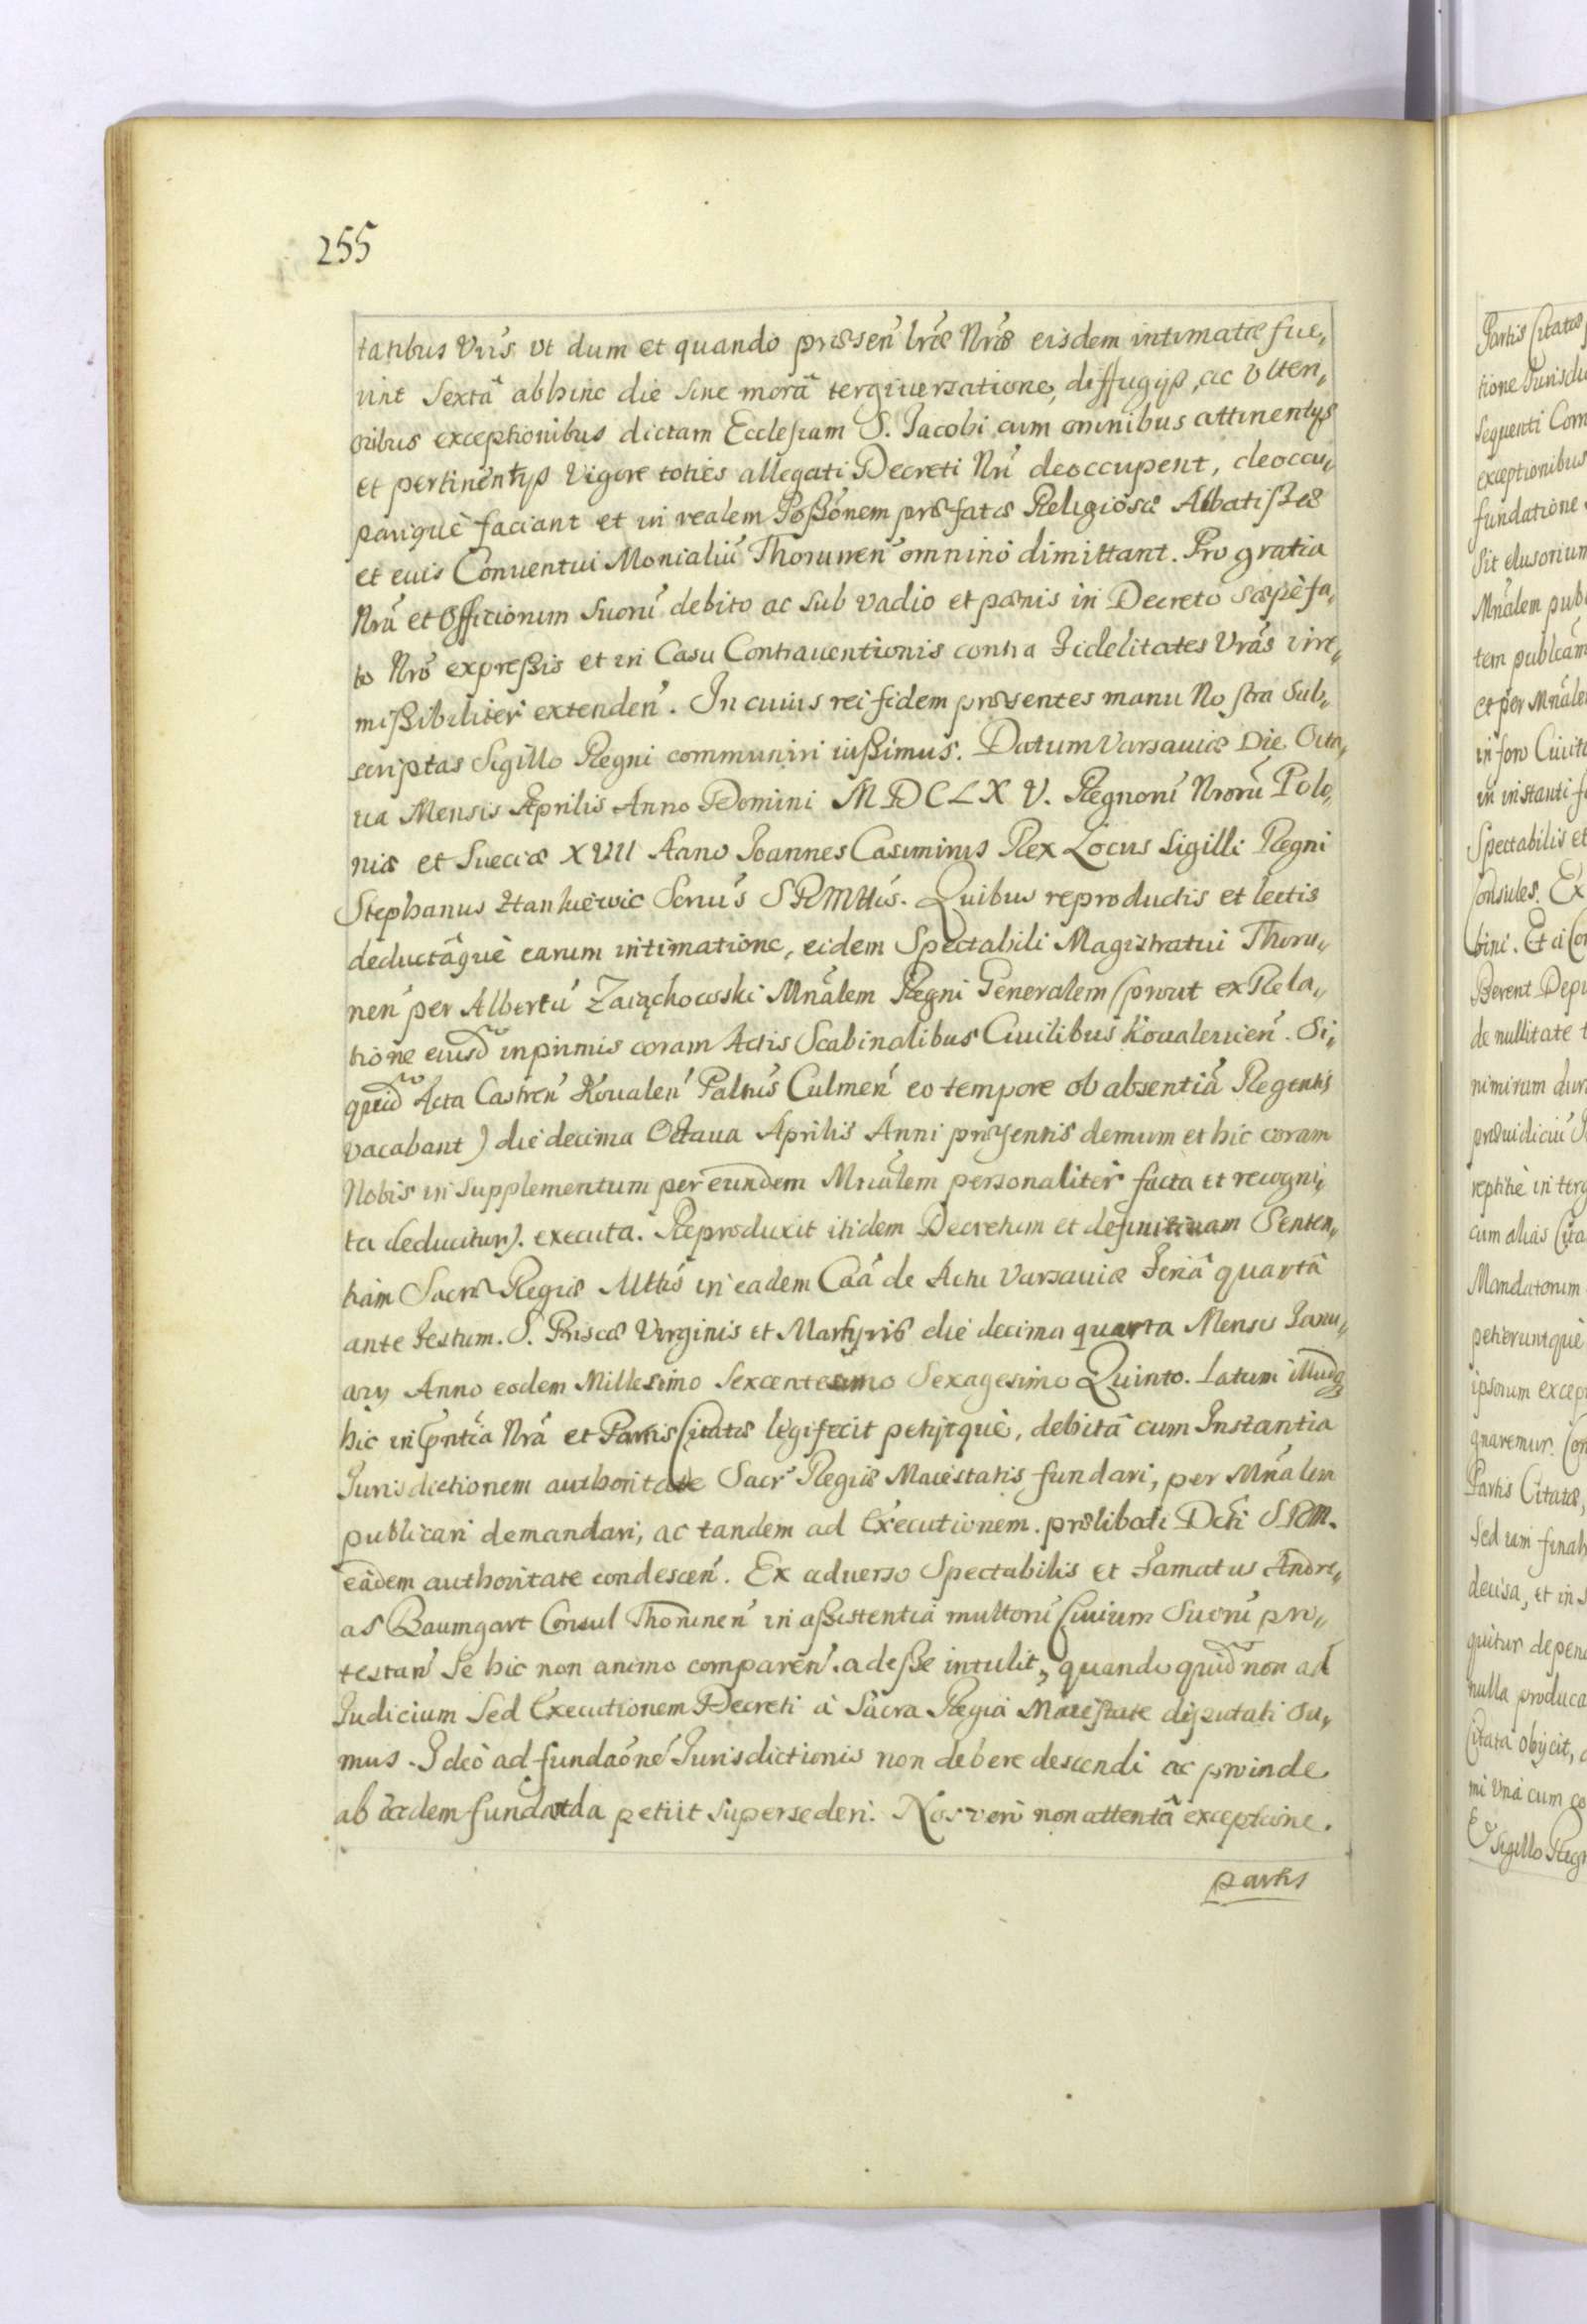 255
tatibus Vris ut dum et quando præsen lræ Nræ eisdem intimatæ fue„
rint Sextâ abhinc die sine morâ tergiuersatione, diffugijs, ac Vlteri„
oribus exceptionibus dictam Ecclesiam S. Iacobi cum omnibus attinentijs
et pertinentijs Vigore toties allegati Decreti Nri deoccupent, deoccu„
pariquè faciant et in realem Possonem præfatæ Religiosæ Abbatissæ
et eius Conuentui Monialiu Thorunen omninò dimittant. Pro gratia
Nrâ et Officiorum Suoru debito ac sub vadio et pœnis in Decreto sæpèfa„
to Nro expressis et in Casu Contrauentionis contra Fidelitates Vras irre„
missibiliter extenden. In cuius rei fidem præsentes manu Nostra Sub„
scriptas Sigillo Regni communiri iussimus. Datum Varsauiæ Die Octa„
ua Mensis Aprilis Anno Domini MDCLXV. Regnoru Nroru Polo„
niæ et Sueciæ XVII Anno Ioannes Casimirus Rex Locus Sigilli Regni
Stephanus Hankiewic Scrius SRMttis. Quibus reproductis et lectis
deductâquè earum intimatione, eidem Spectabili Magistratui Thoru„
nen per Albertu Zaiąchowski Mnalem Regni Generalem (prout ex Rela„
tione eiusd inprimis coram Actis Scabinalibus Ciuilibus Koualeuien. Si„
quid Acta Castren Koualen Paltus Culmen eo tempore ob absentia Regentis
vacabant) die decima Octaua Aprilis Anni præsentis demum et hic coram
Nobis in supplementum per eundem Mnalem personaliter facta et recogni„
ta deducitur). executa. Reproduxit itidem Decretum et definitiuam Senten„
tiam Sacræ Regiæ Mttis in eadem Caa de Actu Varsauiæ Feriâ quartâ
ante Festum. S. Priscæ Virginis et Martyris die decima quarta Mensis Ianu„
arij Anno eodem Millesimo Sexcentesimo Sexagesimo Quinto. Latum illudq
hic in Pntia Nrâ et Partis Citatæ legi fecit petijtquè, debitâ cum Instantia
Iurisdictionem authoritate Sacræ Regiæ Maiestatis fundari, per Mnalem
publicari demandari, ac tandem ad Executionem. prælibati Dcti SRM.
eâdem authoritate condescen. Ex aduerso Spectabilis et Famatus Andre„
as Baumgart Consul Thorunen in assistentia multoru Ciuium Suoru pro„
testan se hic non animo comparen. adesse intulit, quandoquid non ad
Iudicium Sed Executionem Decreti à Sacra Regia Maiestate deputati Su„
mus. Ideò ad fundaone Iurisdictionis non debere descendi ac proinde
ab eadem fundanda petiit supersederi. Nos verò non attentâ exceptione.
partis